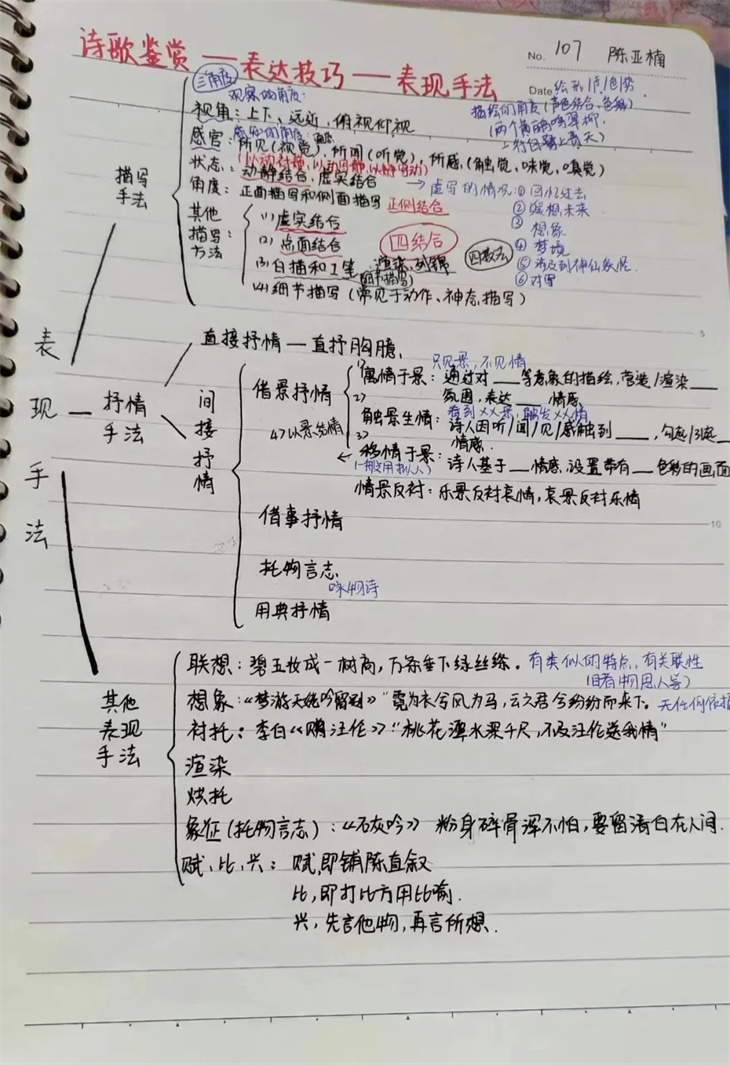 诗歌鉴赏——表达技巧——表现手法
No. 107 陈亚楠
Date 绘形/声/色/势
描绘的角度(声色结合、色彩)
(两个黄鹂鸣翠柳
一行白鹭上青天)
三角度
观察的角度:
视角:上下、远近、俯视仰视
感知的角度
感官:所见(视觉),所闻(听觉),所感(触觉、味觉、嗅觉)
(以动衬静,以动写静,以静写动)
状态:动静结合,虚实结合
→虚写的情况:①回忆过去
②联想未来
③想象
④梦境
⑤涉及到神仙鬼怪
⑥对写
描写手法
角度:正面描写和侧面描写 正侧结合
其他描写方法:
(1)虚实结合
四结合
(2)点面结合
(3)白描和工笔,渲染、列锦
(细节描写)
(4)细节描写(常见于动作、神态描写)
表现手法
直接抒情—直抒胸臆
抒情手法
间接抒情
只见景,不见情
借景抒情
1)寓情于景:通过对___等意象的描绘,营造/渲染___
氛围,表达___情感
看到××景,触发××情
2)触景生情:诗人因听/闻/见/感触到___,勾起/引起__
情感
4)以景结情
3)移情于景:诗人基于__情感,设置带有__色彩的画面
(一般用拟人)
情景反衬:乐景反衬哀情,哀景反衬乐情
借事抒情
托物言志
咏物诗
用典抒情
其他表现手法
联想:碧玉妆成一树高,万条垂下绿丝绦。有类似的特点,有关联性
(由此物思人等)
想象:《梦游天姥吟留别》"霓为衣兮风为马,云之君兮纷纷而来下。无任何依据
衬托:李白《赠汪伦》"桃花潭水深千尺,不及汪伦送我情"
渲染
烘托
象征(托物言志):《石灰吟》 粉身碎骨浑不怕,要留清白在人间.
赋、比、兴:赋,即铺陈直叙
比,即打比方用比喻.
兴,先言他物,再言所想.